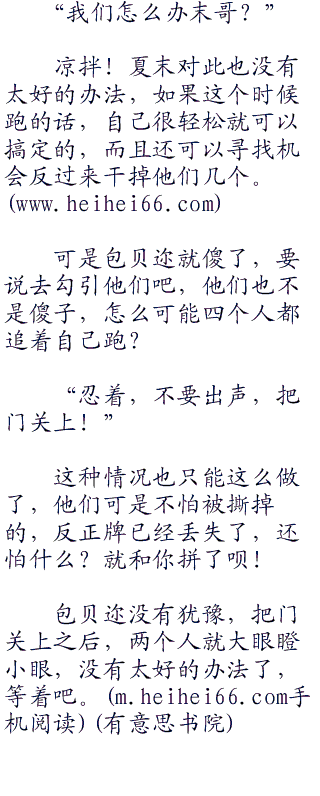 “我们怎么办末哥？”
凉拌！夏末对此也没有
太好的办法，如果这个时候
跑的话，自己很轻松就可以
搞定的，而且还可以寻找机
会反过来干掉他们几个。
(www.heihei66.com)
可是包贝迩就傻了，要
说去勾引他们吧，他们也不
是傻子，怎么可能四个人都
追着自己跑？
“忍着，不要出声，把
门关上！”
这种情况也只能这么做
了，他们可是不怕被撕掉
的，反正牌已经丢失了，还
怕什么？就和你拼了呗！
包贝迩没有犹豫，把门
关上之后，两个人就大眼瞪
小眼，没有太好的办法了，
等着吧。(m.heihei66.com手
机阅读)(有意思书院)